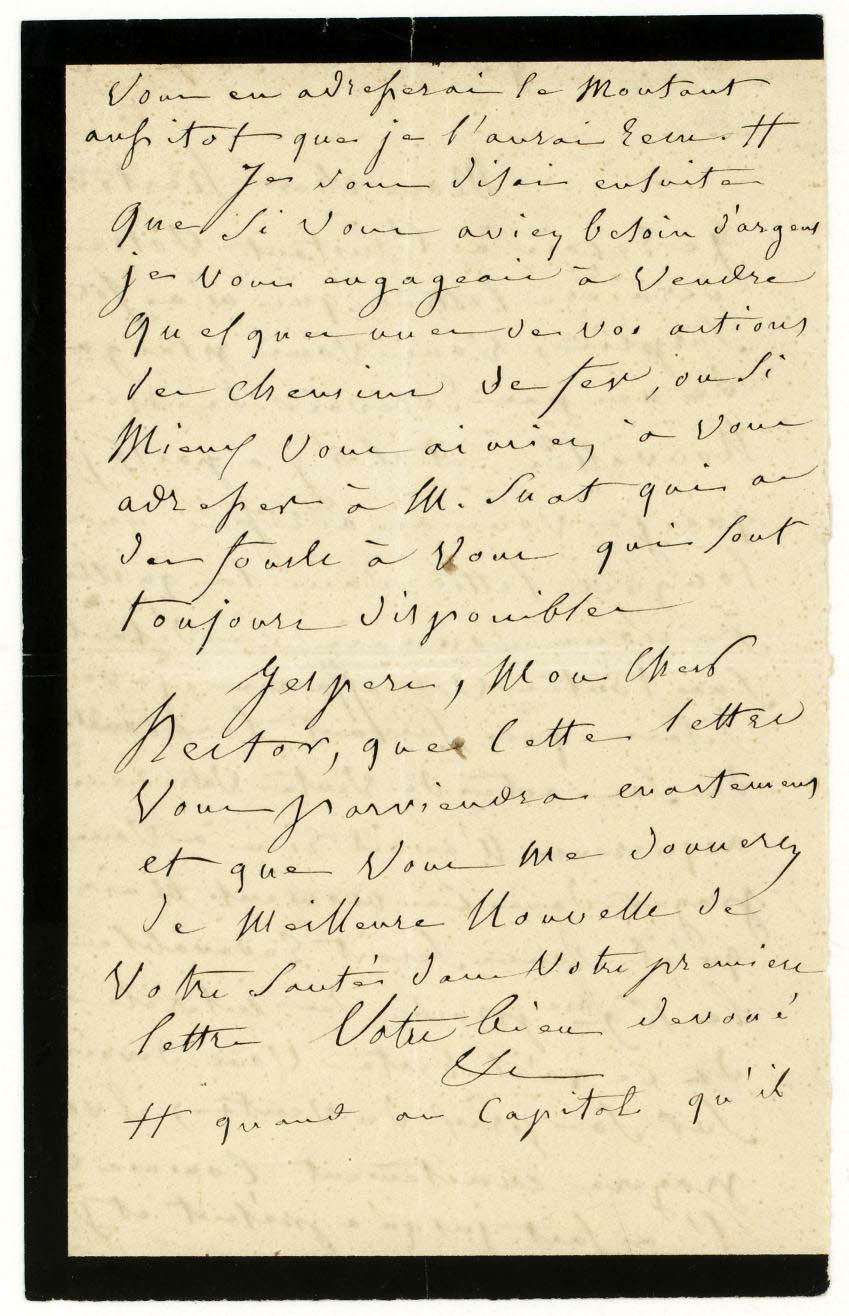 vous en adresserai le Montant
aussitot que je l'aurai recu. #
Je vous disais ensuite
que si vous aviez besoin d'argent
je vous engageais à vendre
quelques unes de vos actions
des chemins de fer, ou si
Mieux vous aimiez à vous
adresser à M. Suat qui a
des fonds à vous qui sont
toujours disponibles
J'espere, Mon Cher
Nestor, que cette lettre
vous parviendra exactement
et que vous me donnerez
de Meilleure Nouvelle de
votre santé dans votre premiere
lettre Votre bien devoué
&c
# quand au Capital qu'il